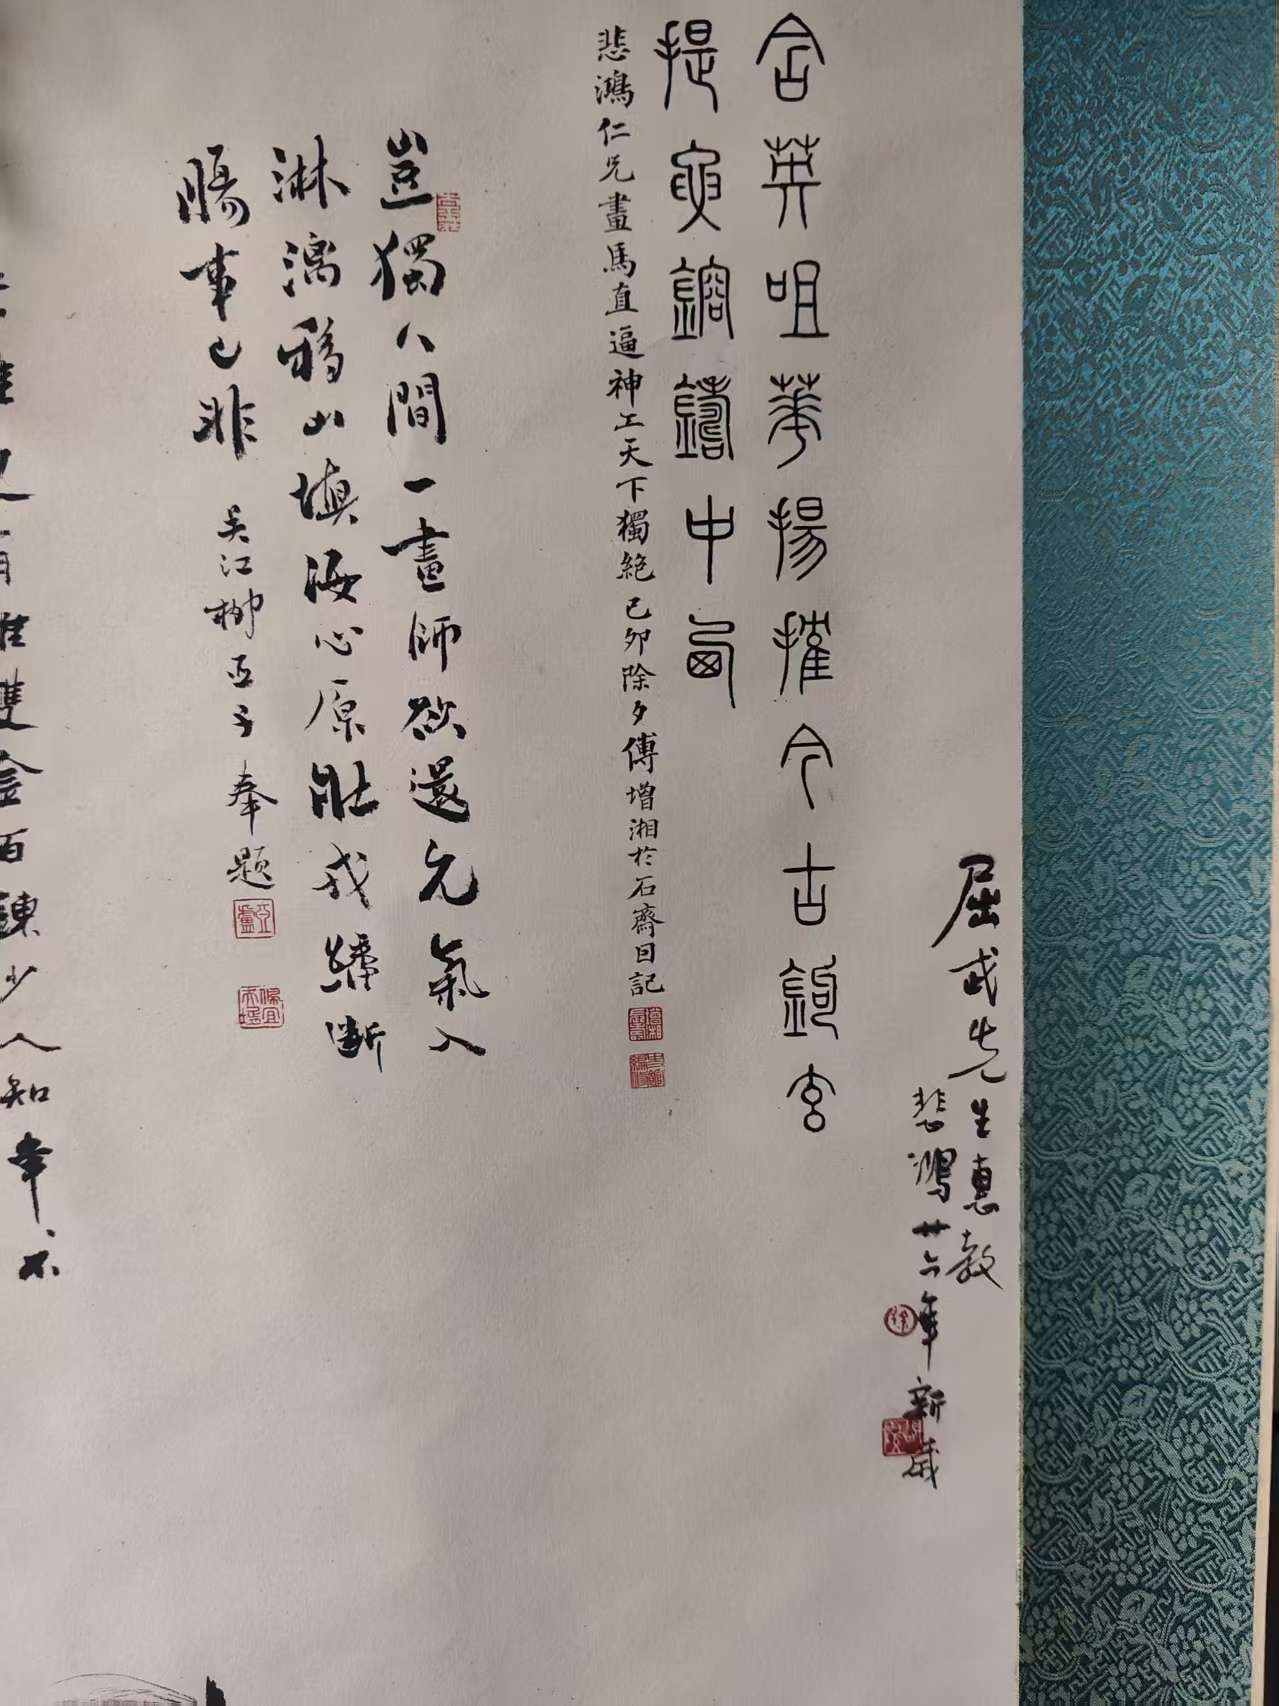 屈武先生惠教
悲鴻廿六年新歲
含英咀華揚搉今古鉤玄
提要鎔鑄中西
悲鴻仁兄畫馬直逼神工天下獨絕己卯除夕傅增湘於石齋日記
豈獨人間一畫師欲還元氣入
淋漓移山填海心原壯戎纔斷
腸事已非
吳江柳亞子奉題
雙金百鍊少人知幸不